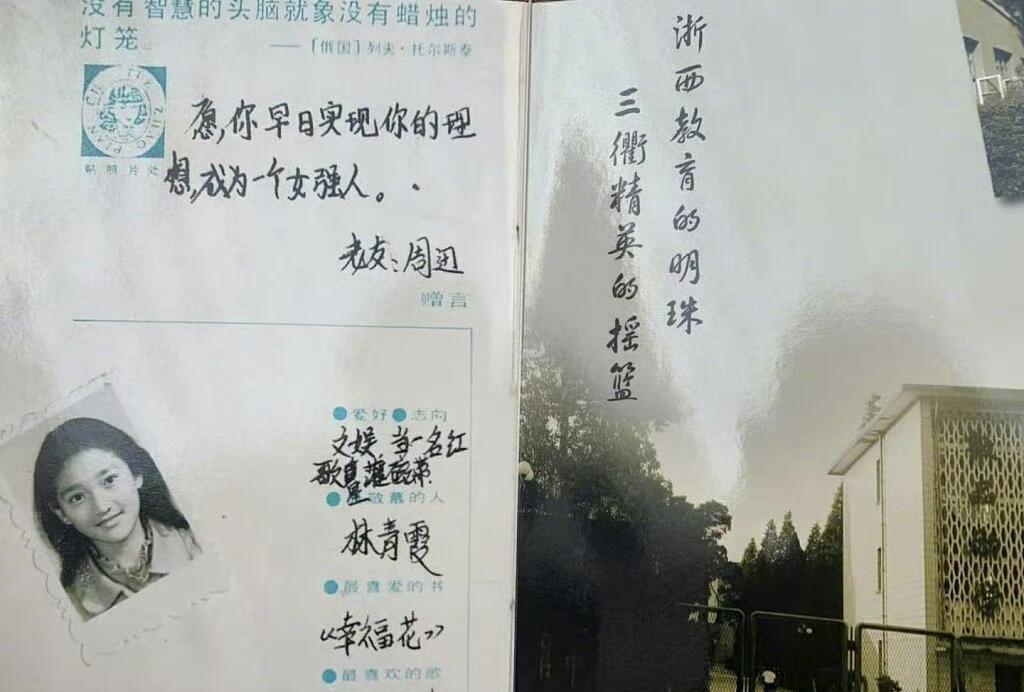 没有智慧的头脑就象没有蜡烛的
灯笼。
——〔俄国〕列夫·托尔斯泰
贴照片处
愿,你早日实现你的理
想,成为一个女强人。
老友:周迅
赠言
●爱好●志向
文娱 当一名红
歌星
●敬慕的人
林青霞
●最喜爱的书
《幸福花》
●最喜欢的歌
浙西教育的明珠
三衢精英的摇篮